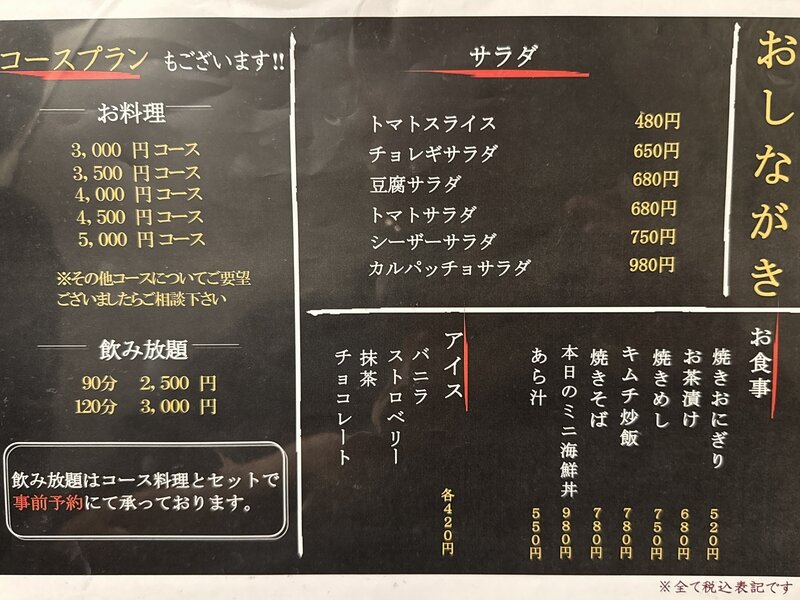 おしながき
サラダ
トマトスライス 480円
チョレギサラダ 650円
豆腐サラダ 680円
トマトサラダ 680円
シーザーサラダ 750円
カルパッチョサラダ 980円
お食事
焼きおにぎり 520円
お茶漬け 680円
焼きめし 750円
キムチ炒飯 780円
焼きそば 780円
本日のミニ海鮮丼 980円
あら汁 550円
アイス
バニラ
ストロベリー
抹茶
チョコレート
各420円
コースプラン もございます!!
お料理
3,000 円コース
3,500 円コース
4,000 円コース
4,500 円コース
5,000 円コース
※その他コースについてご要望
ございましたらご相談下さい
飲み放題
90分 2,500 円
120分 3,000 円
飲み放題はコース料理とセットで
事前予約にて承っております。
※全て税込表記です